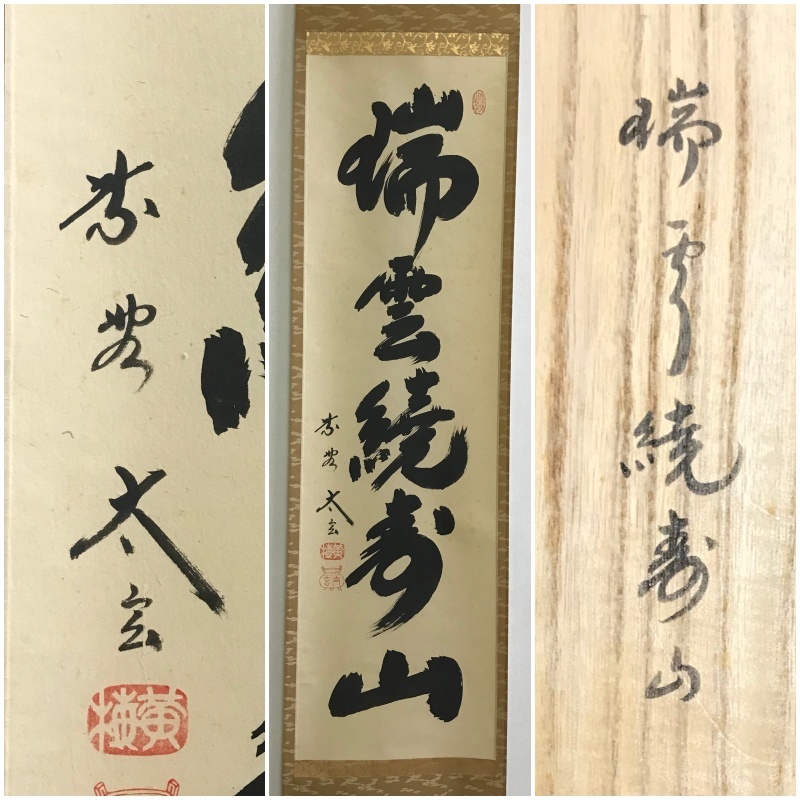 紫野 太玄
黄梅
瑞雲繞寿山
紫野 太玄
黄梅
瑞雲繞寿山